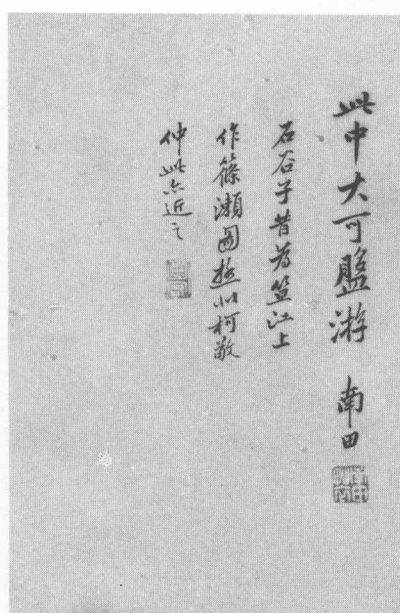 此中大可盤游 南田
石谷子昔為笪江上
作篠瀨圖極似柯敬
仲此亦近之